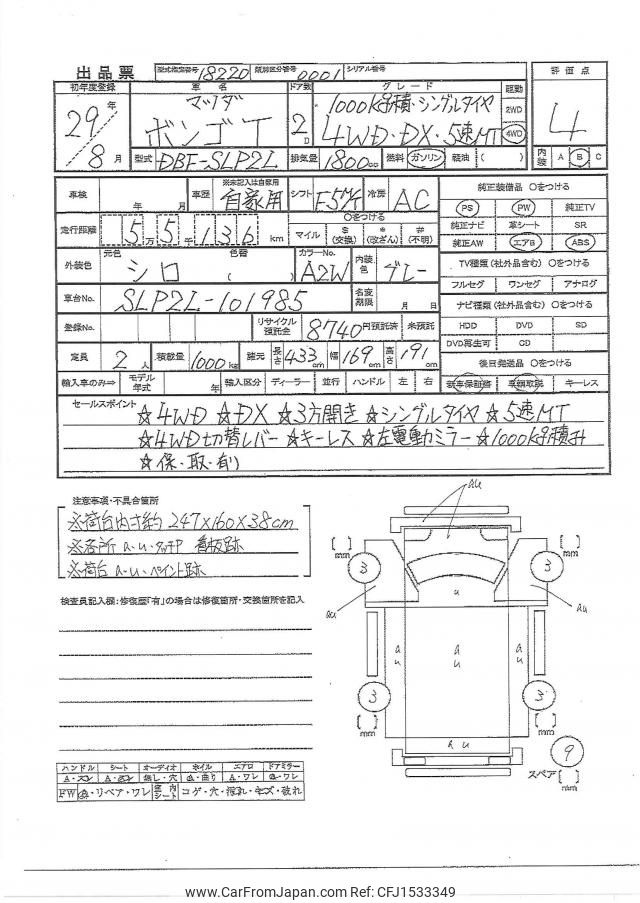 出品票 型式指定番号 18220 類別区分番号 0001 シリアル番号
初年度登録 車名 ドア数 グレード 駆動 評価点
29年 マツダ 1000kg積・シングルタイヤ 2WD
8月 ボンゴT 2D 4WD・DX・5速MT 4WD 4
型式 DBF-SLP2L 排気量 1800cc 燃料 ガソリン 軽油 ( ) 内装 A B C
車検 年 月 車歴 ※未記入は自家用 自家用 シフト F5MT 冷房 AC 純正装備品 〇をつける
PS PW 純正TV
走行距離 5万5千136km 〇をつける マイル $(交換) *(改ざん) #(不明) 純正ナビ 革シート SR
純正AW エアB ABS
外装色 元色 シロ 色替 ( ) カラーNo. A2W 内装色 グレー TV種類(社外品含む) 〇をつける
フルセグ ワンセグ アナログ
車台No. SLP2L-101985 名変期限 月 日 ナビ種類(社外品含む) 〇をつける
登録No. リサイクル預託金 8740円預託済 未預託 HDD DVD SD
DVD再生可 CD
定員 2人 積載量 1000kg 諸元 長さ 433cm 幅 169cm 高さ 191cm 後日発送品 〇をつける
輸入車のみ⇒ モデル年式 年 輸入区分 ディーラー 並行 ハンドル 左 右 新車保証書 車輌取説 キーレス
セールスポイント ☆4WD ☆DX ☆3方開き ☆シングルタイヤ ☆5速MT
☆4WD切替レバー ☆キーレス ☆左電動ミラー ☆1000kg積み
☆保・取・有り
注意事項・不具合箇所
※荷台内寸約 247×160×38cm
※各所 a.u.タッチP 看板跡
※荷台 a.u.ペイント跡
検査員記入欄:修復歴「有」の場合は修復箇所・交換箇所を記入
au
mm mm
3 3
u
au au
a u a u a u
3 3
mm mm
a u
9
スペア mm
ハンドル シート オーディオ ホイル エアロ ドアミラー
A・スレ 無し・穴 曲り A・ワレ ワレ
FW リペア・ワレ 室内シート コゲ・穴・擦れ・キズ・破れ
www.CarFromJapan.com Ref: CFJ1533349